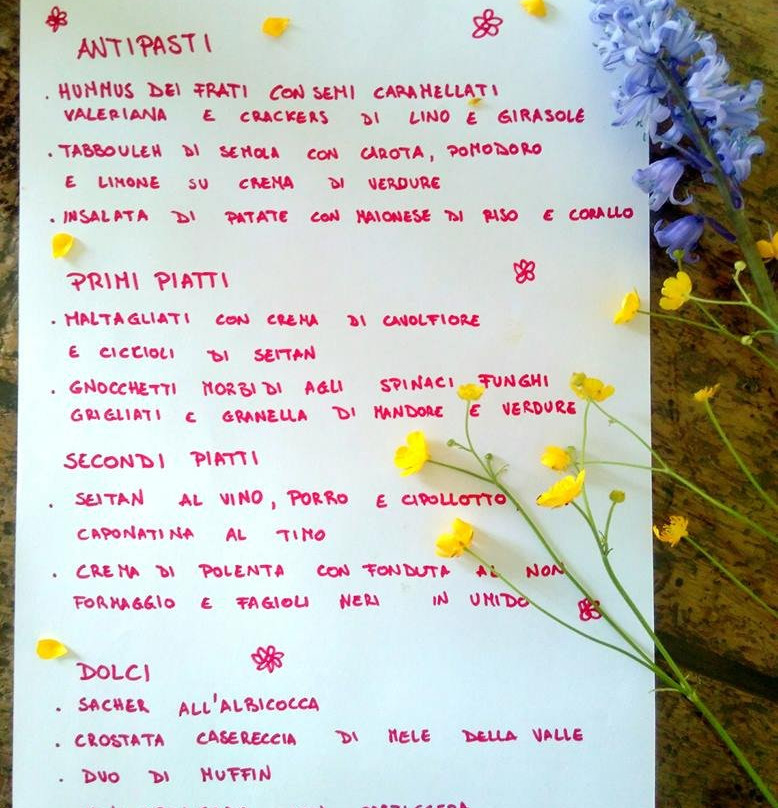 ANTIPASTI
. HUMMUS DEI FRATI CON SEMI CARAMELLATI
VALERIANA E CRACKERS DI LINO E GIRASOLE
. TABBOULEH DI SEMOLA CON CAROTA, POMODORO
E LIMONE SU CREMA DI VERDURE
. INSALATA DI PATATE CON MAIONESE DI RISO E CORALLO
PRIMI PIATTI
. MALTAGLIATI CON CREMA DI CAVOLFIORE
E CICCIOLI DI SEITAN
. GNOCCHETTI MORBIDI AGLI SPINACI, FUNGHI
GRIGLIATI E GRANELLA DI MANDORE E VERDURE
SECONDI PIATTI
. SEITAN AL VINO, PORRO E CIPOLLOTTO,
CAPONATINA AL TIMO
. CREMA DI POLENTA CON FONDUTA AL NON
FORMAGGIO E FAGIOLI NERI IN UMIDO
DOLCI
. SACHER ALL'ALBICOCCA
. CROSTATA CASERECCIA DI MELE DELLA VALLE
. DUO DI MUFFIN